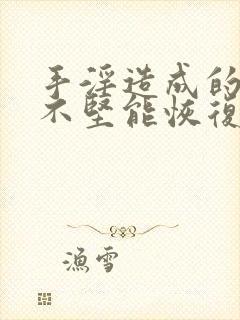 手淫造成的
不堅能恢復
漁雪